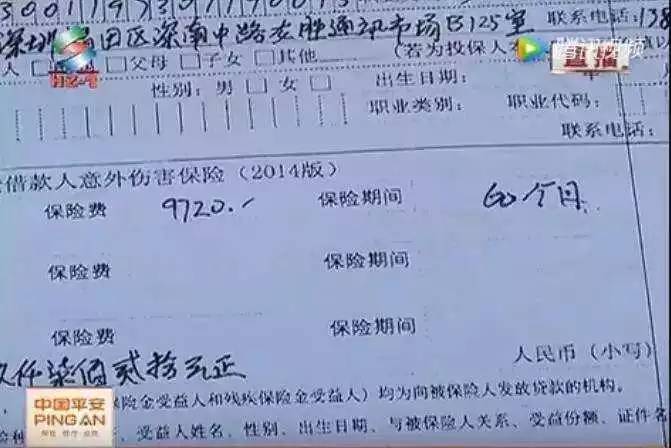 深圳 田区深南中路 胜通讯市场B125室
联系电话:
人 □ □父母 □子女 □其他 (若为投保人
直播
HZ-1
性别: 男□ 女□ 出生日期: 年
职业类别: 职业代码:
联系电话:
借款人意外伤害保险(2014版)
保险费 9720.- 保险期间 60个月
保险费 保险期间
保险费 保险期间
仟柒佰贰拾元正 人民币(小写)
中国平安
PING AN
保险·银行·投资
保险金受益人和残疾保险金受益人)均为向被保险人发放贷款的机构。
受益人姓名、性别、出生日期、与被保险人关系、受益份额、证件